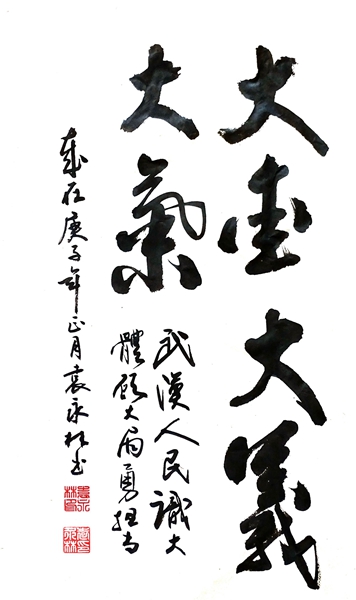 大愛大義
大氣
武漢人民識大
體顧大局勇担当
歲在庚子年正月袁永林书